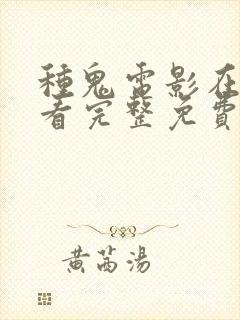 種鬼電影在
看完整免費
黃芩湯